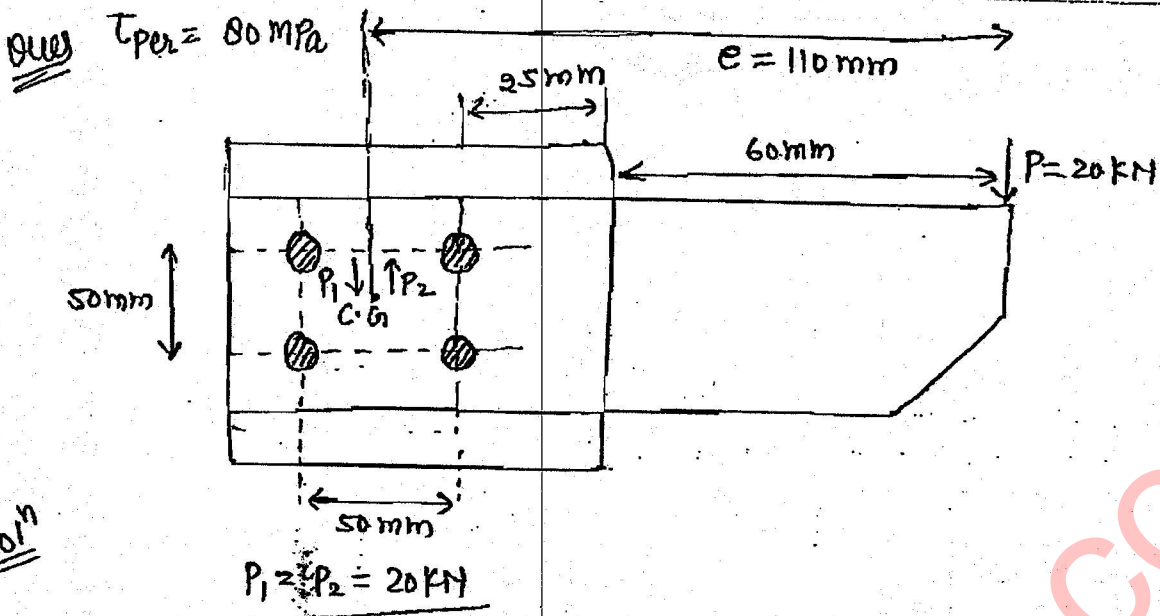 Ques τper = 80 MPa
e = 110 mm
25 mm
60 mm
P = 20 KN
50 mm
P₁ ↓ ↑ P₂
C.G
50 mm
Solⁿ
P₁ = P₂ = 20 KN